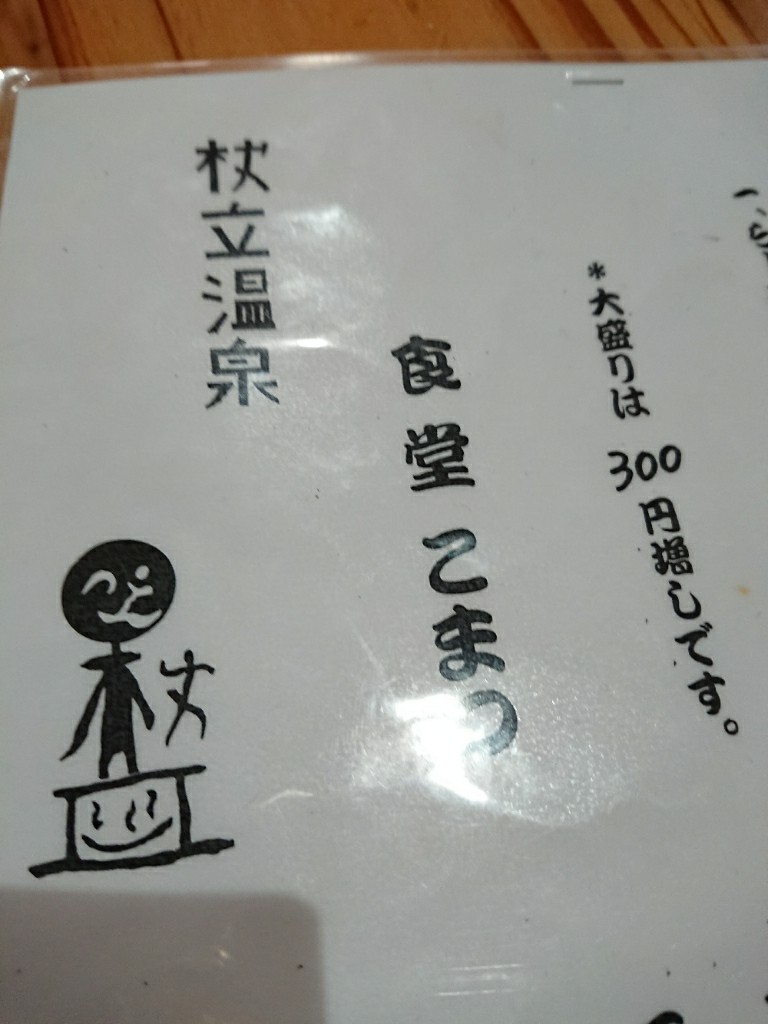 *大盛りは300円増しです。
食堂こまつ
杖立温泉